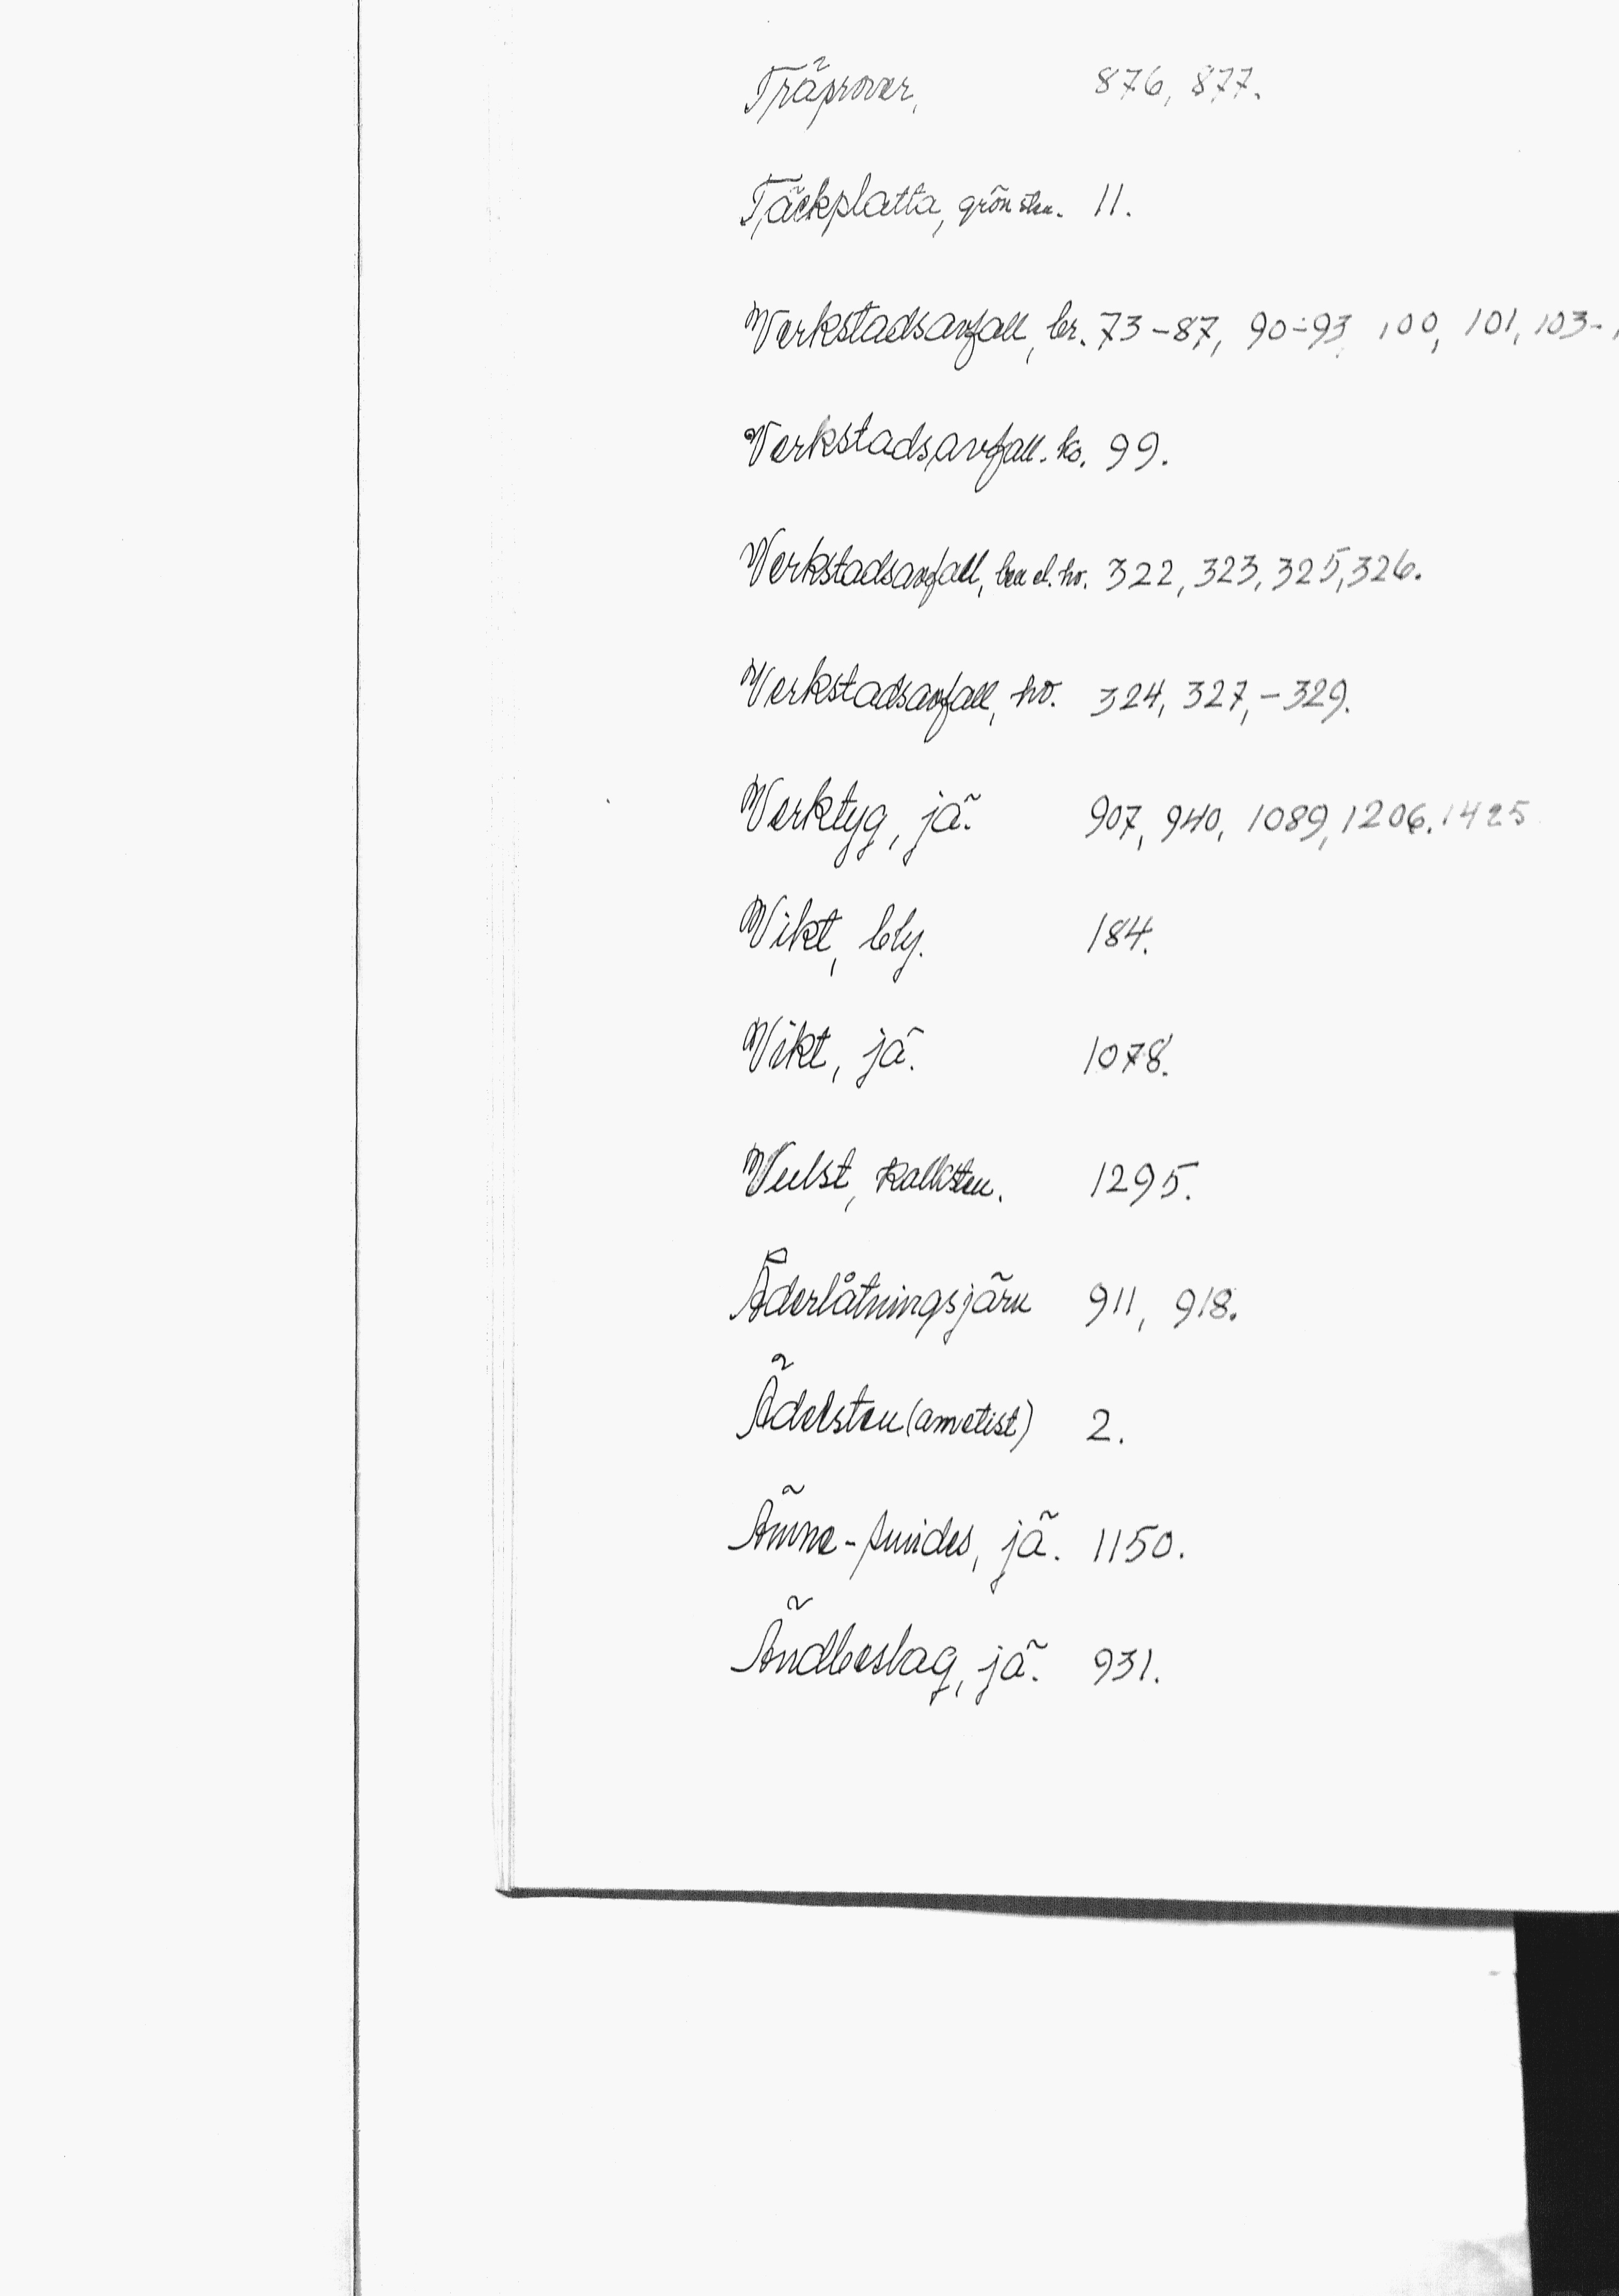 Träprover, 876, 877.
Täckplatta, grönsten. 11.
Verkstadsavfall, br. 73-87, 90-93, 100, 101, 103-
Verkstadsavfall. ko. 99.
Verkstadsavfall, ben el. ho. 322, 323, 325, 326.
Verkstadsavfall, ho. 324, 327,-329.
Verktyg, jä. 907, 940, 1089, 1206. 1425
Vikt, bly. 184.
Vikt, jä. 1078.
Vulst, kalksten. 1295.
Åderlåtningsjärn 911, 918.
Ädelsten (ametist) 2.
Ämne-smides, jä. 1150.
Ändbeslag, jä. 931.